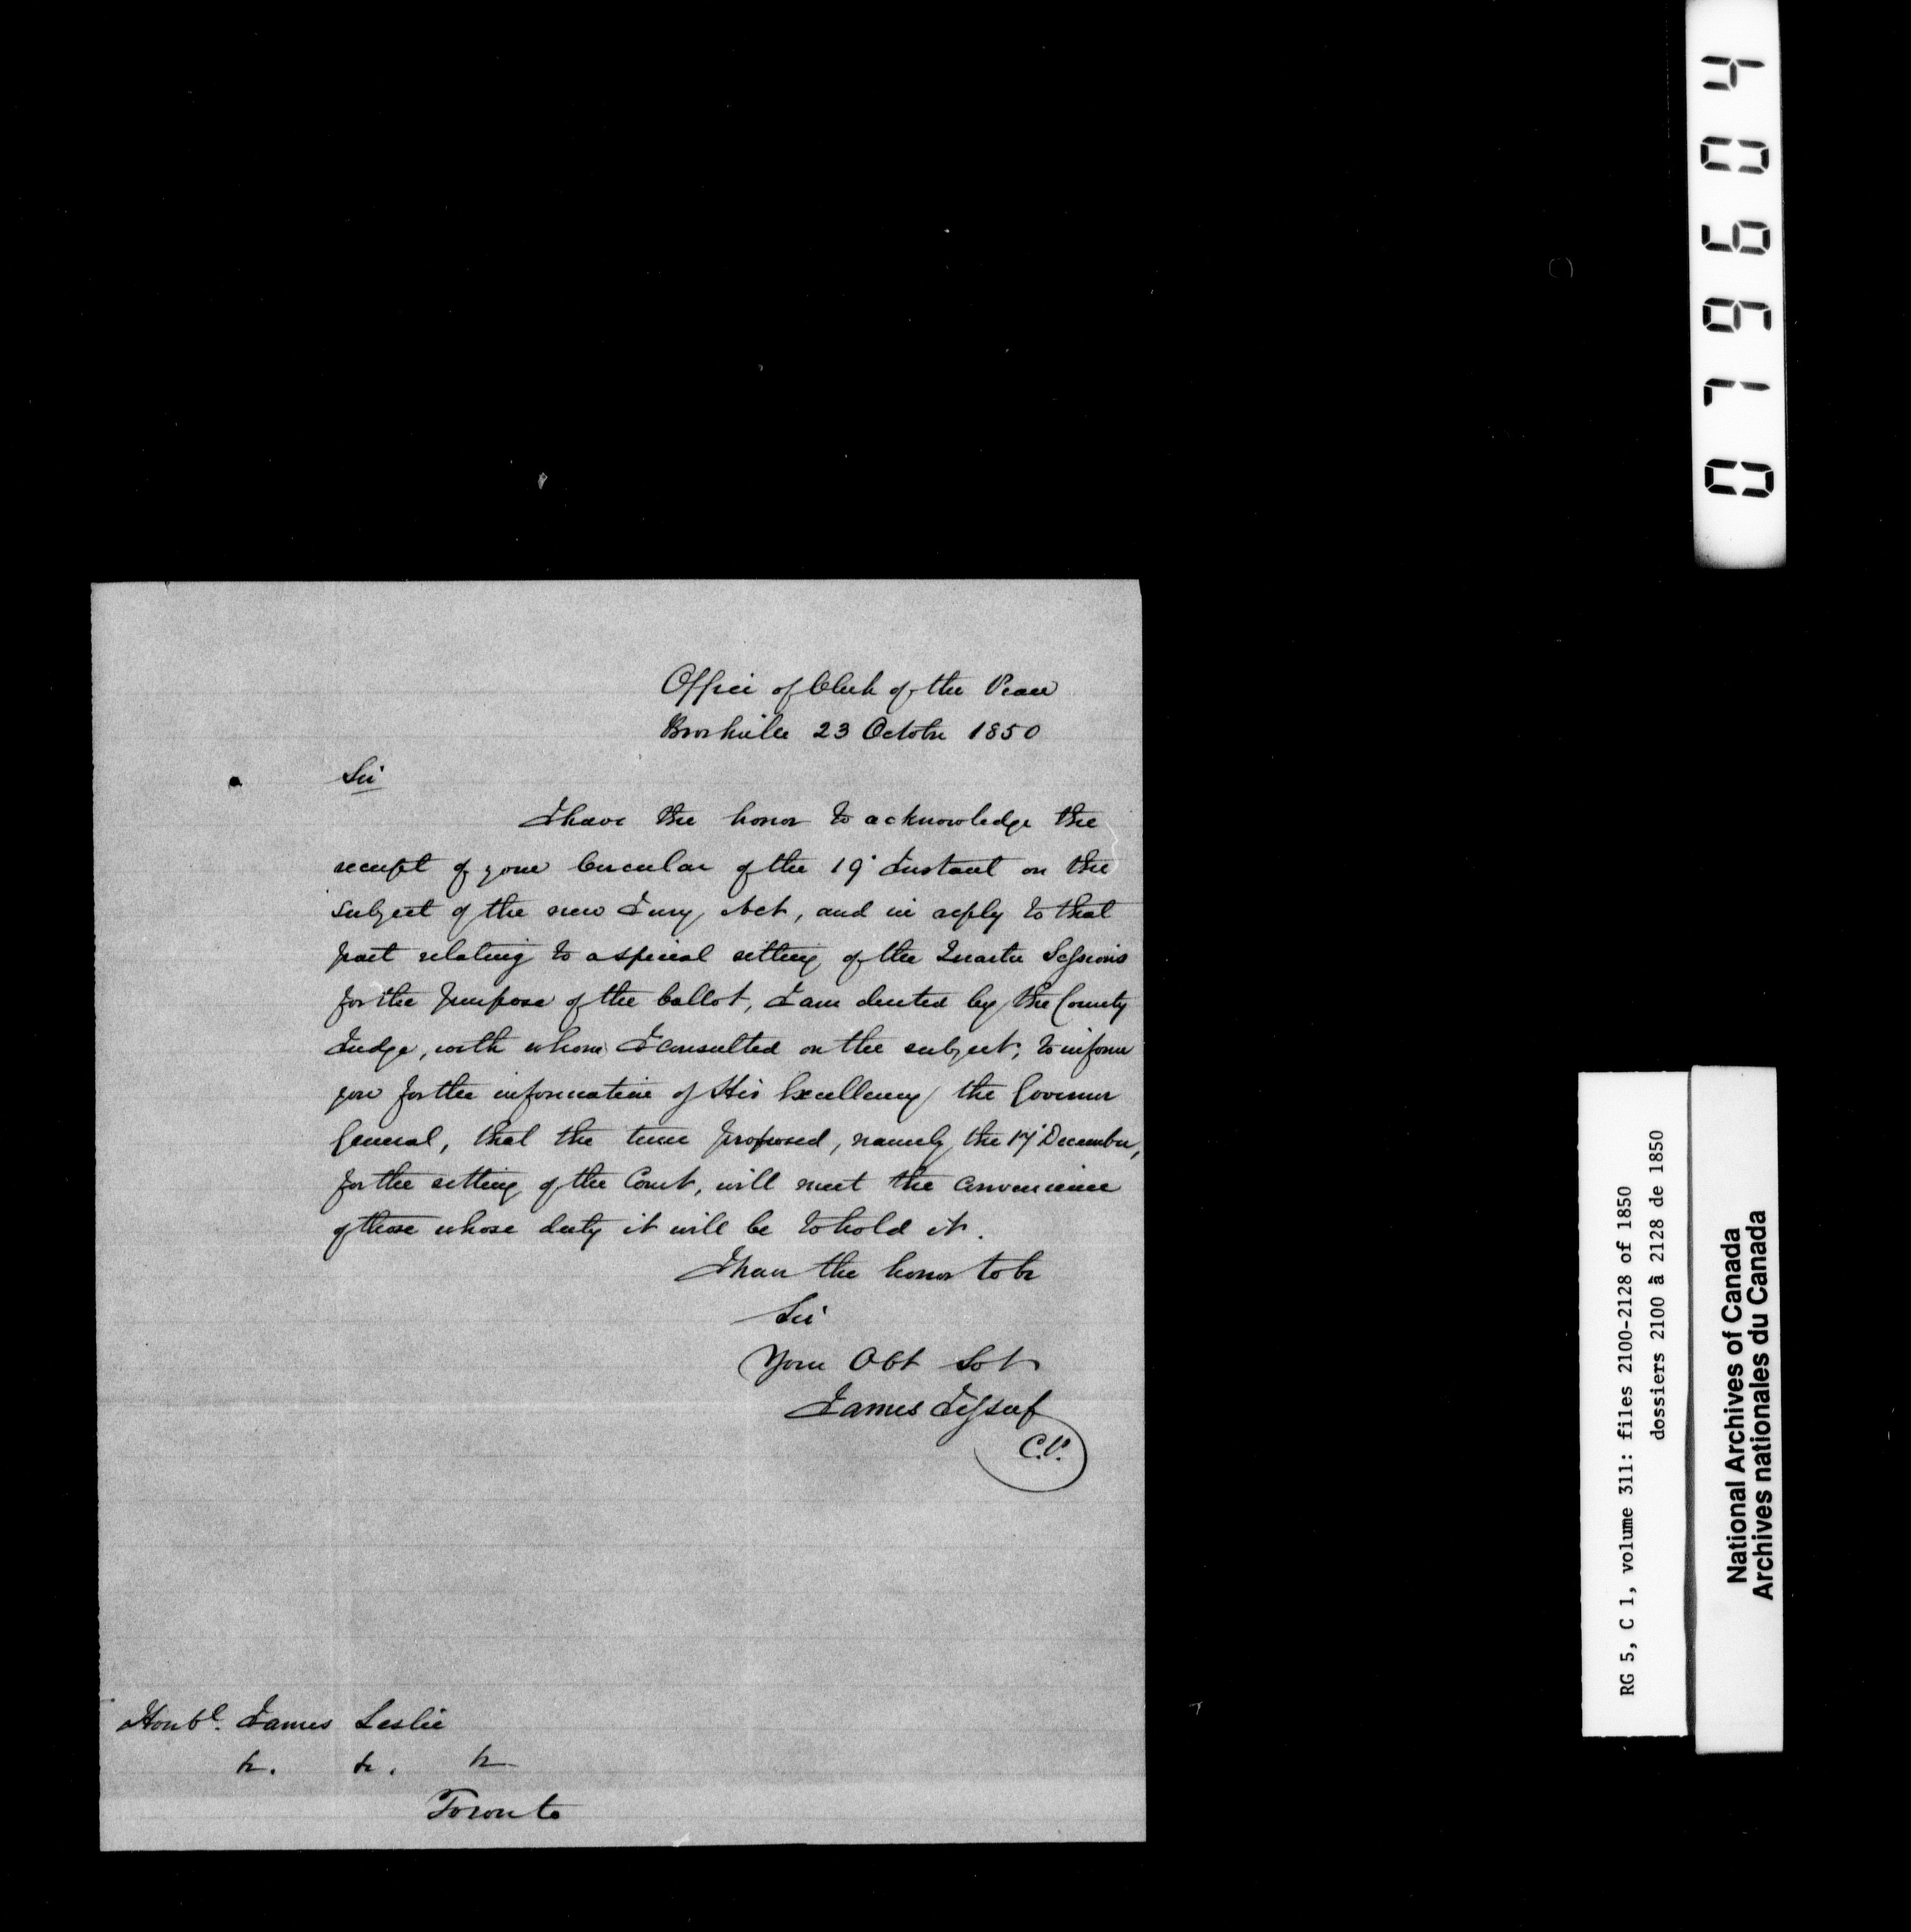 Office of Clerk of the Peace
Brockville 23 October 1850
Sir
I have the honor to acknowledge the
receipt of your Circular of the 19th Instant on the
subject of the new Jury Act, and in reply to that
part relating to a special sitting of the Quarter Sessions
for the purpose of the ballot, I am directed by the County
Judge, with whom I consulted on the subject, to inform
you for the information of His Excellency the Governor
General, that the time proposed, namely the 17th December,
for the sitting of the Court, will meet the convenience
of those whose duty it will be to hold it.
I have the honor to be
Sir
Your Obt Svt
James Jessup
C.P.
Honble. James Leslie
&c. &c. &c
Toronto
079604
RG 5, C 1, volume 311: files 2100-2128 of 1850
dossiers 2100 à 2128 de 1850
National Archives of Canada
Archives nationales du Canada